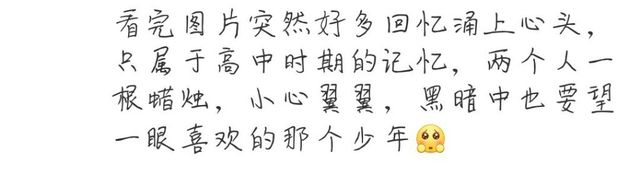 看完图片突然好多回忆涌上心头，
只属于高中时期的记忆，两个人一
根蜡烛，小心翼翼，黑暗中也要望
一眼喜欢的那个少年🥺